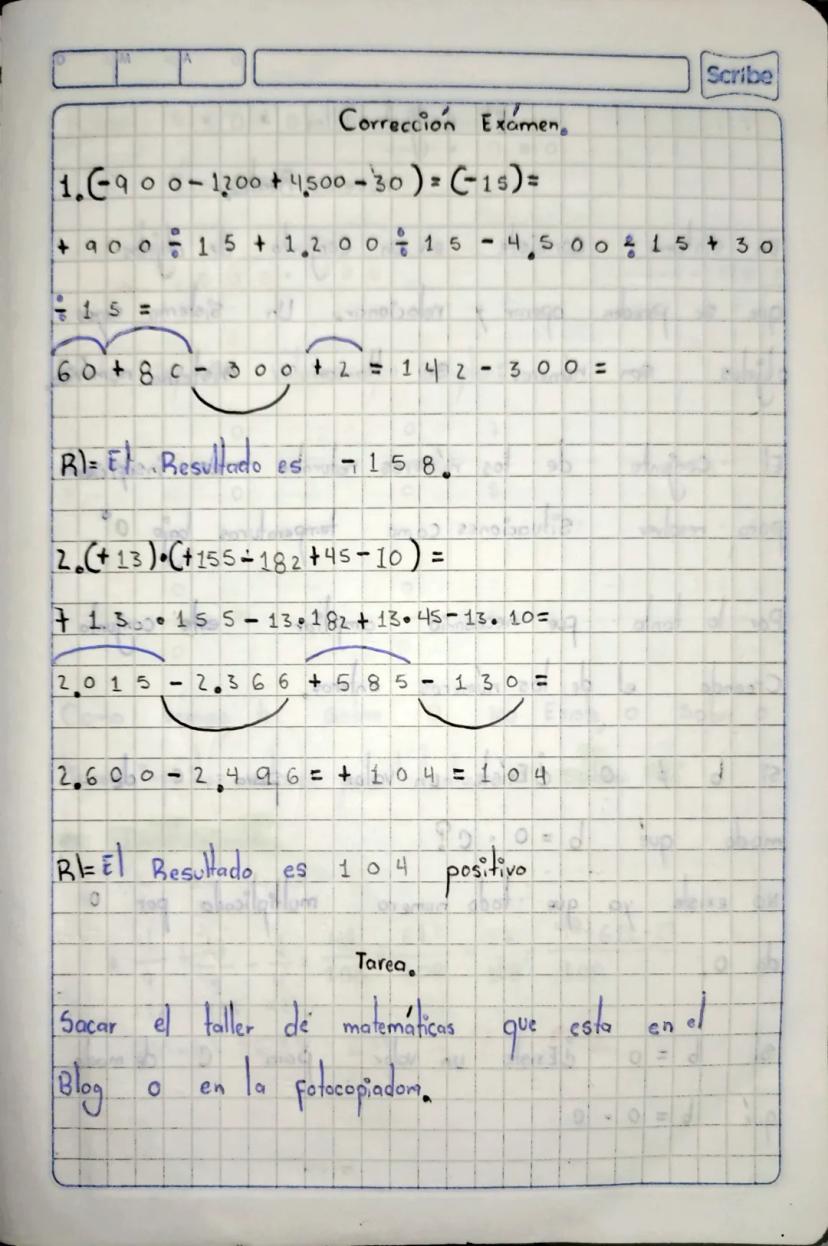 D M A
Scribe
Corrección Exámen.
1.(-900-1,200+4,500-30)=(-15)=
+900÷15+1.200÷15-4,500÷15+30
÷15=
60+80-300+2=142-300=
R|= El Resultado es -158.
2.(+13)•(+155-182+45-10)=
+13•155-13•182+13•45-13.10=
2.015-2.366+585-130=
2.600-2,496=+104=104
R|= El Resultado es 104 positivo
Tarea.
Sacar el taller de matemáticas que esta en el
Blog o en la fotocopiadora.